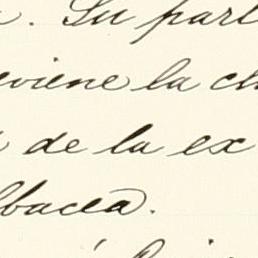 . Su part
eviene la ch
de la ex
lbacea.